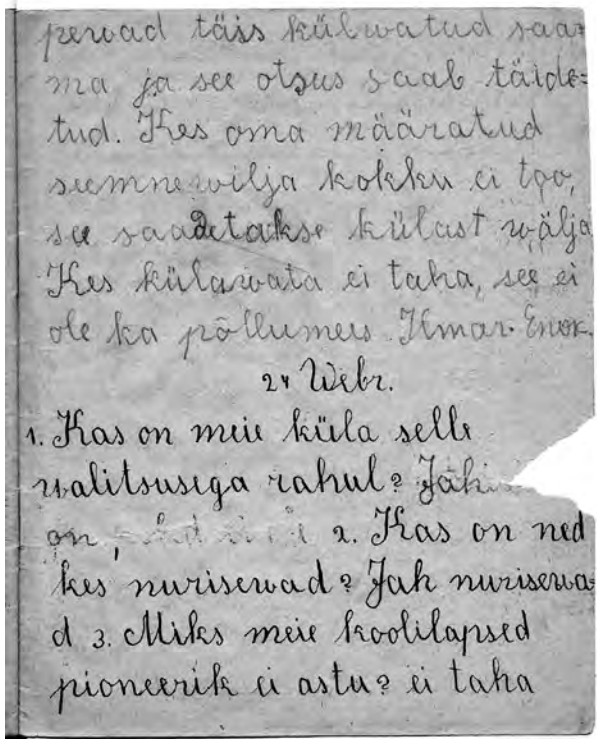 perwad täis külwatud saa=
ma ja see otsus saab täide=
tud. Kes oma määratud
seemnewilja kokku ei too,
see saadetakse külast wälja
Kes külawata ei taha, see ei
ole ka põllumees. Ilmar Enok.
24 Webr.
1. Kas on meie küla selle
walitsusega rahul? Jah
on, 2. Kas on ned
kes nurisewad? Jah nurisewa-
d 3. Miks meie koolilapsed
pioneerik ei astu? ei taha